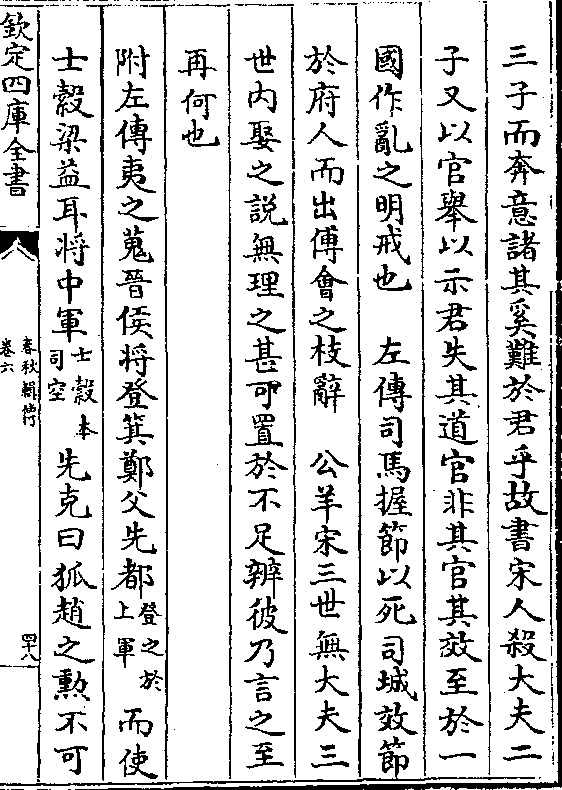 三子而奔意諸其奚難於君乎故書宋人殺大夫二
子又以官舉以示君失其道官非其官其效至於一
國作亂之明戒也　左傳司馬握節以死司城效節
於府人而出傅會之枝辭　公羊宋三世無大夫三
世内娶之説無理之甚可置於不足辨彼乃言之至
再何也
附左傳夷之蒐晉侯将登箕鄭父先都登之於上軍而使
士縠梁益耳将中軍士縠本司空先克曰狐趙之勲不可
欽定四庫全書
春秋輯傳
卷六
四十八